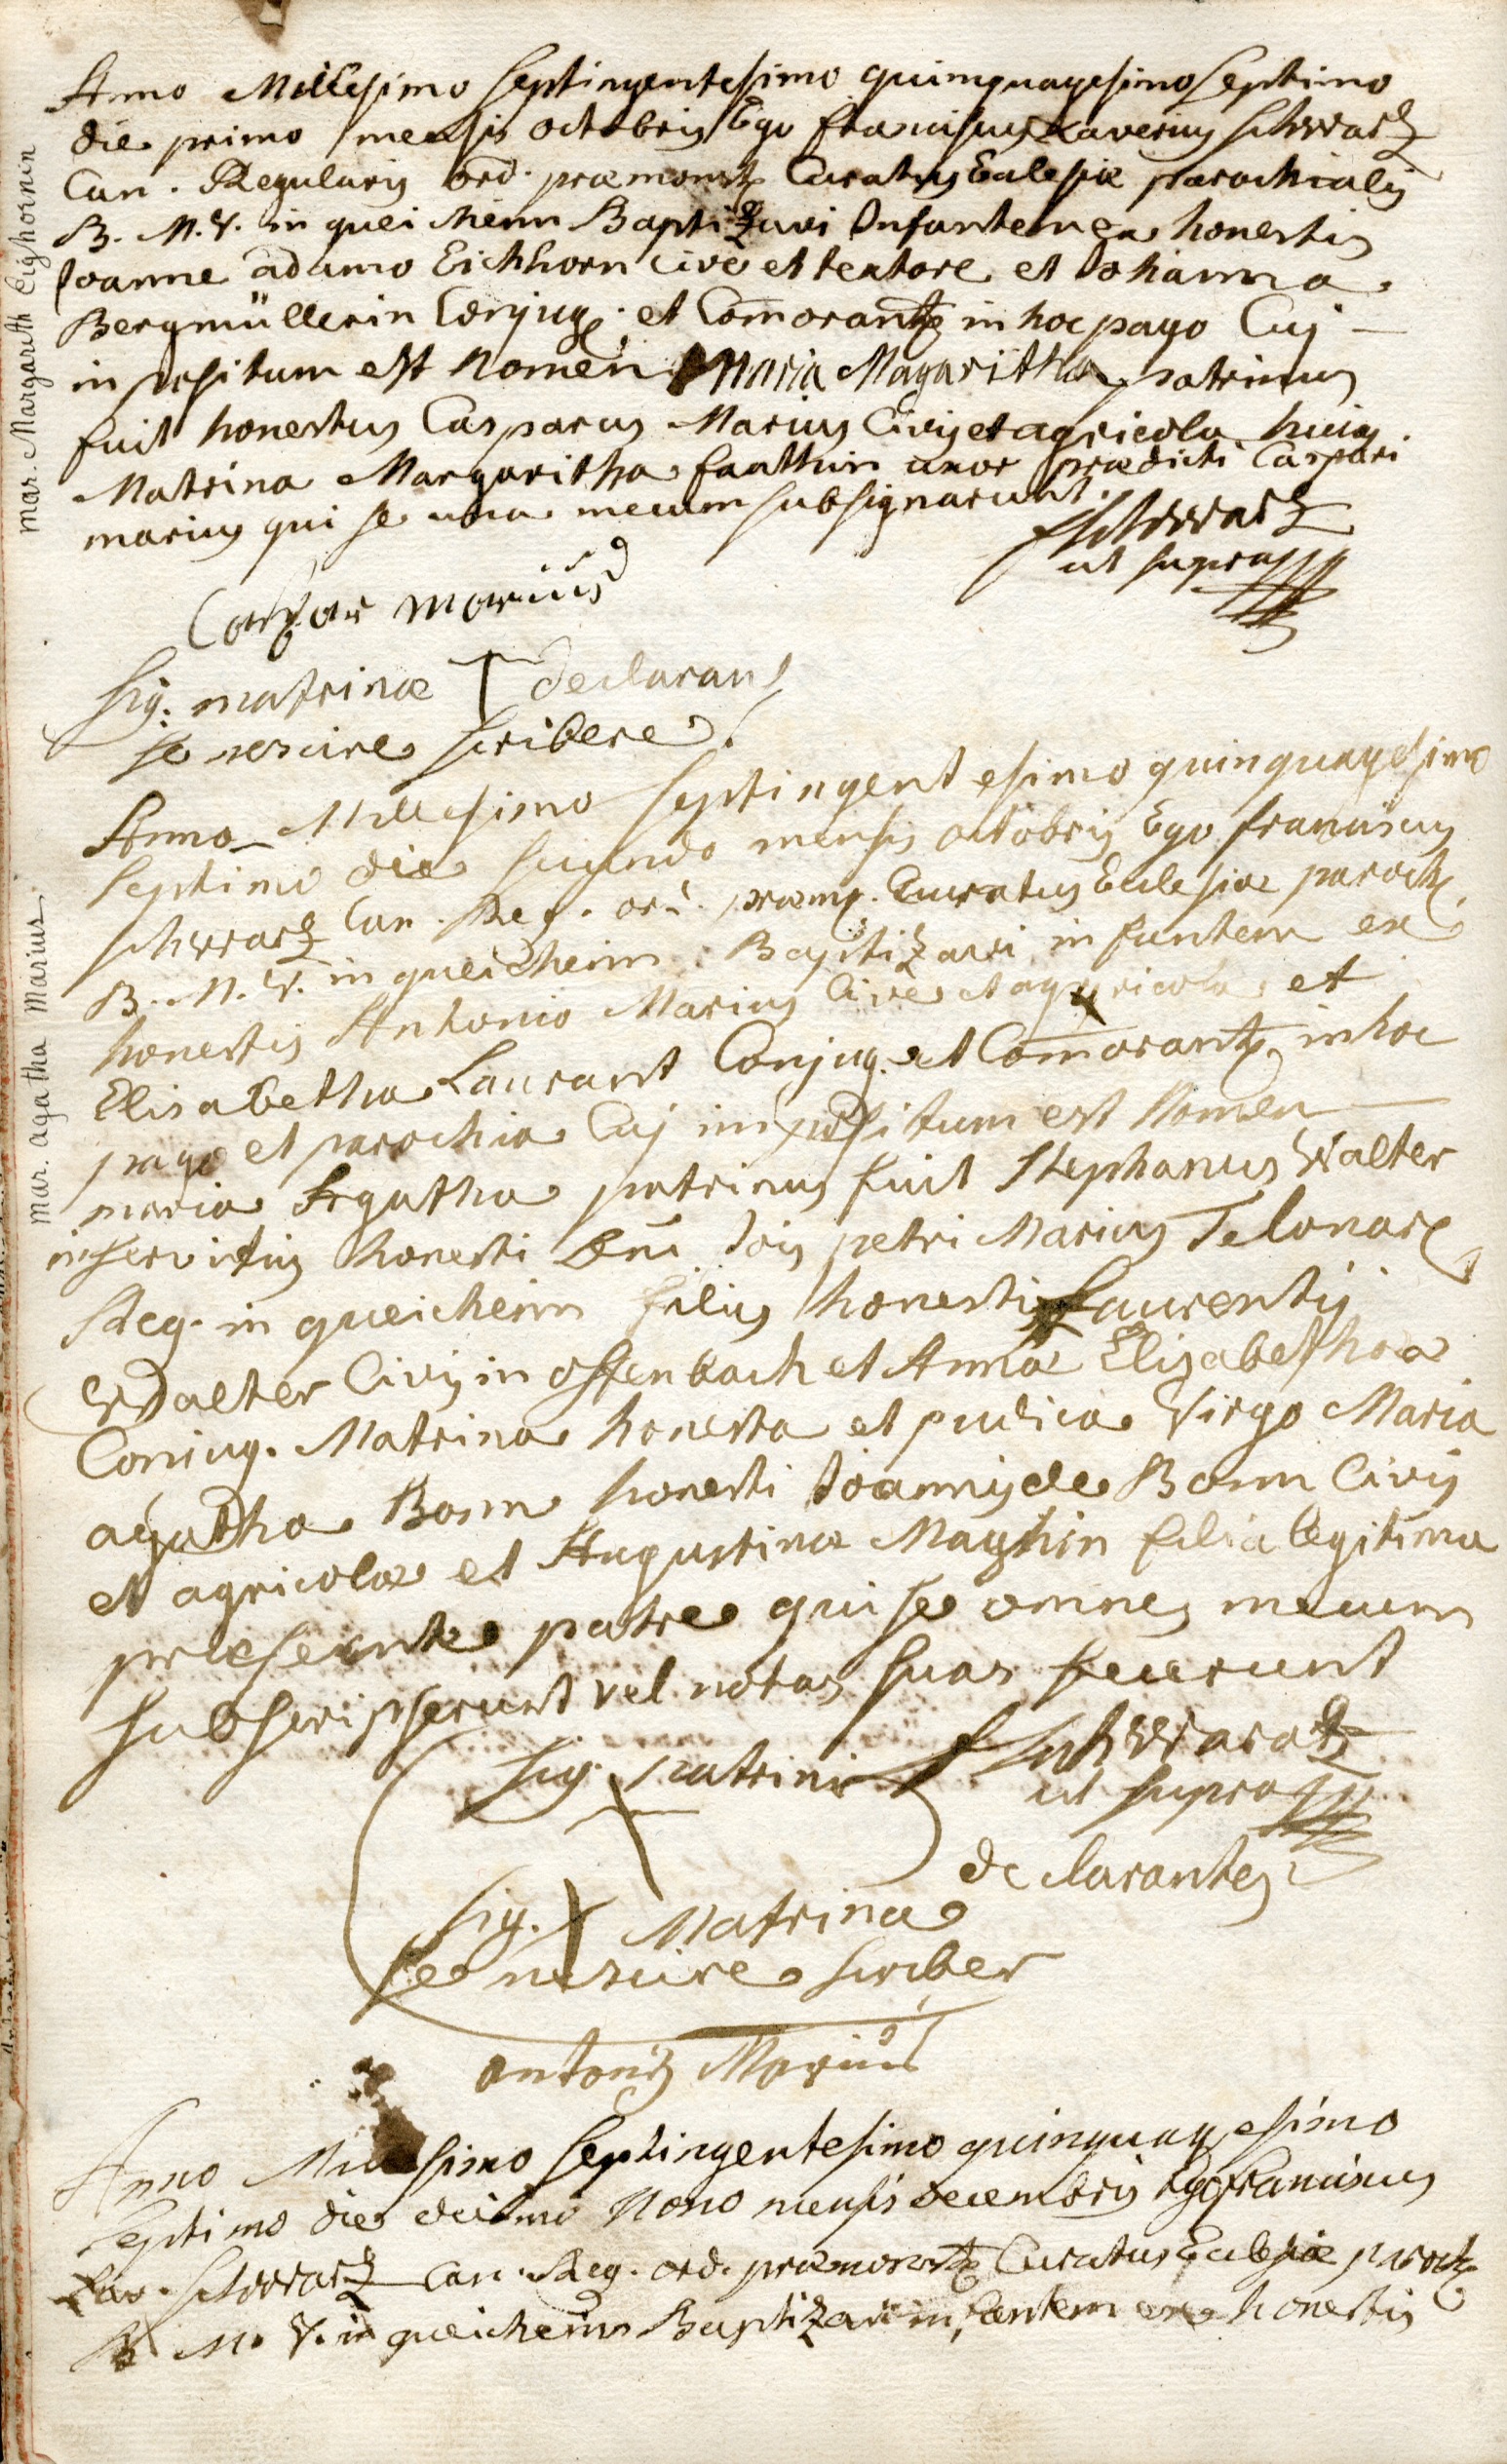 Anno Millesimo Septingentesimo quinquagesimo Septimo
die primo mensis octobris Ego franciscus Xaverius schwartz
Can. Regularis ord. præmonst. Curatus Eclesiæ parochialis
B. M. V. in queichheim Baptizavi Infantem ex honestis
Joanne adamo Eichhorn cive et textore et Johanna
Bergmüllerin Conjug. et Comorant. in hoc pago Cuj
impositum est Nomen Maria Magaritha patrinus
fuit honestus Casparus Marius Civis et agricola huias.
Matrina Margaritha fauthin uxor prædicti Caspari
marius qui se una mecum subsignarunt.
fschwartz
ut supra
Caspar Mariüs
sig: matrinæ declarans
se nescire scribere.
Anno Millesimo Septingentesimo quinquagesimo
septimo die secundo mensis octobris Ego franciscus
schwartz Can. Reg. ord. præm. Curatus Eclesiæ paroch.
B. M. V. in queichheim Baptizavi infantem ex
honestis Antonio Marius Cive et agricola et
Elisabetha Laurant Conjug. et Comorant. in hoc
pago et parochia Cuj impositum est Nomen
maria Agatha patrinus fuit Stephanus Walter
in servitiis honesti Dni Jois petri Marius Telonar.
Reg. in queicheim filius honesti Laurentij
Walter Civis in offenbach et Anna Elisabetha
Coniug. Matrina honesta et pudica Virgo Maria
agatha Bom honesti Joannis de Bom Civis
et agricolæ et Augustinæ Maghin filia legitima
præsente patre qui se omnes mecum
subscripserunt vel notas suas fecerunt
sig. patrini
f schwartz
ut supra
declarantes
sig. Matrina
se nescire scriber
antonis Mariüs
Anno Millesimo Septingentesimo quinquagesimo
septimo die decimo Nono mensis decembris Ego franciscus
Xav. schwartz Can. Reg. ord. præmonst. Curatus Eclesiæ paroch.
B. M. V. in queicheim Baptizavi infantem ex honestis
mar. Margareth Eighornin
mar. agatha Marius.